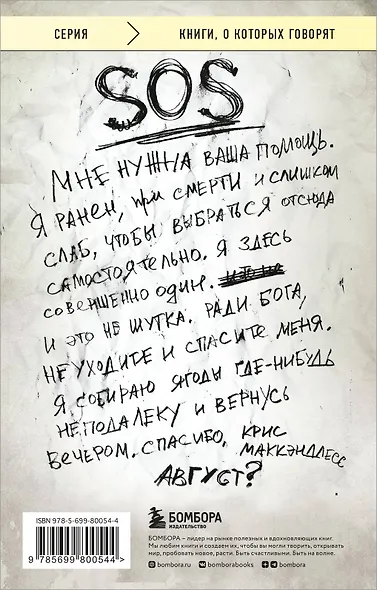 СЕРИЯ
КНИГИ, О КОТОРЫХ ГОВОРЯТ
SOS
МНЕ НУЖНА ВАША ПОМОЩЬ.
Я РАНЕН, ПРИ СМЕРТИ И СЛИШКОМ
СЛАБ, ЧТОБЫ ВЫБРАТЬСЯ ОТСЮДА
САМОСТОЯТЕЛЬНО. Я ЗДЕСЬ
СОВЕРШЕННО ОДИН.
И ЭТО НЕ ШУТКА. РАДИ БОГА,
НЕ УХОДИТЕ И СПАСИТЕ МЕНЯ.
Я СОБИРАЮ ЯГОДЫ ГДЕ-НИБУДЬ
НЕПОДАЛЕКУ И ВЕРНУСЬ
ВЕЧЕРОМ. СПАСИБО, КРИС
МАККЭНДЛЕСС
АВГУСТ?
ISBN 978-5-699-80054-4
9 785699 800544 >
БОМБОРА
ИЗДАТЕЛЬСТВО
БОМБОРА – лидер на рынке полезных и вдохновляющих книг.
Мы любим книги и создаем их, чтобы вы могли творить, открывать
мир, пробовать новое, расти. Быть счастливыми. Быть на волне.
bombora.ru bomborabooks bombora